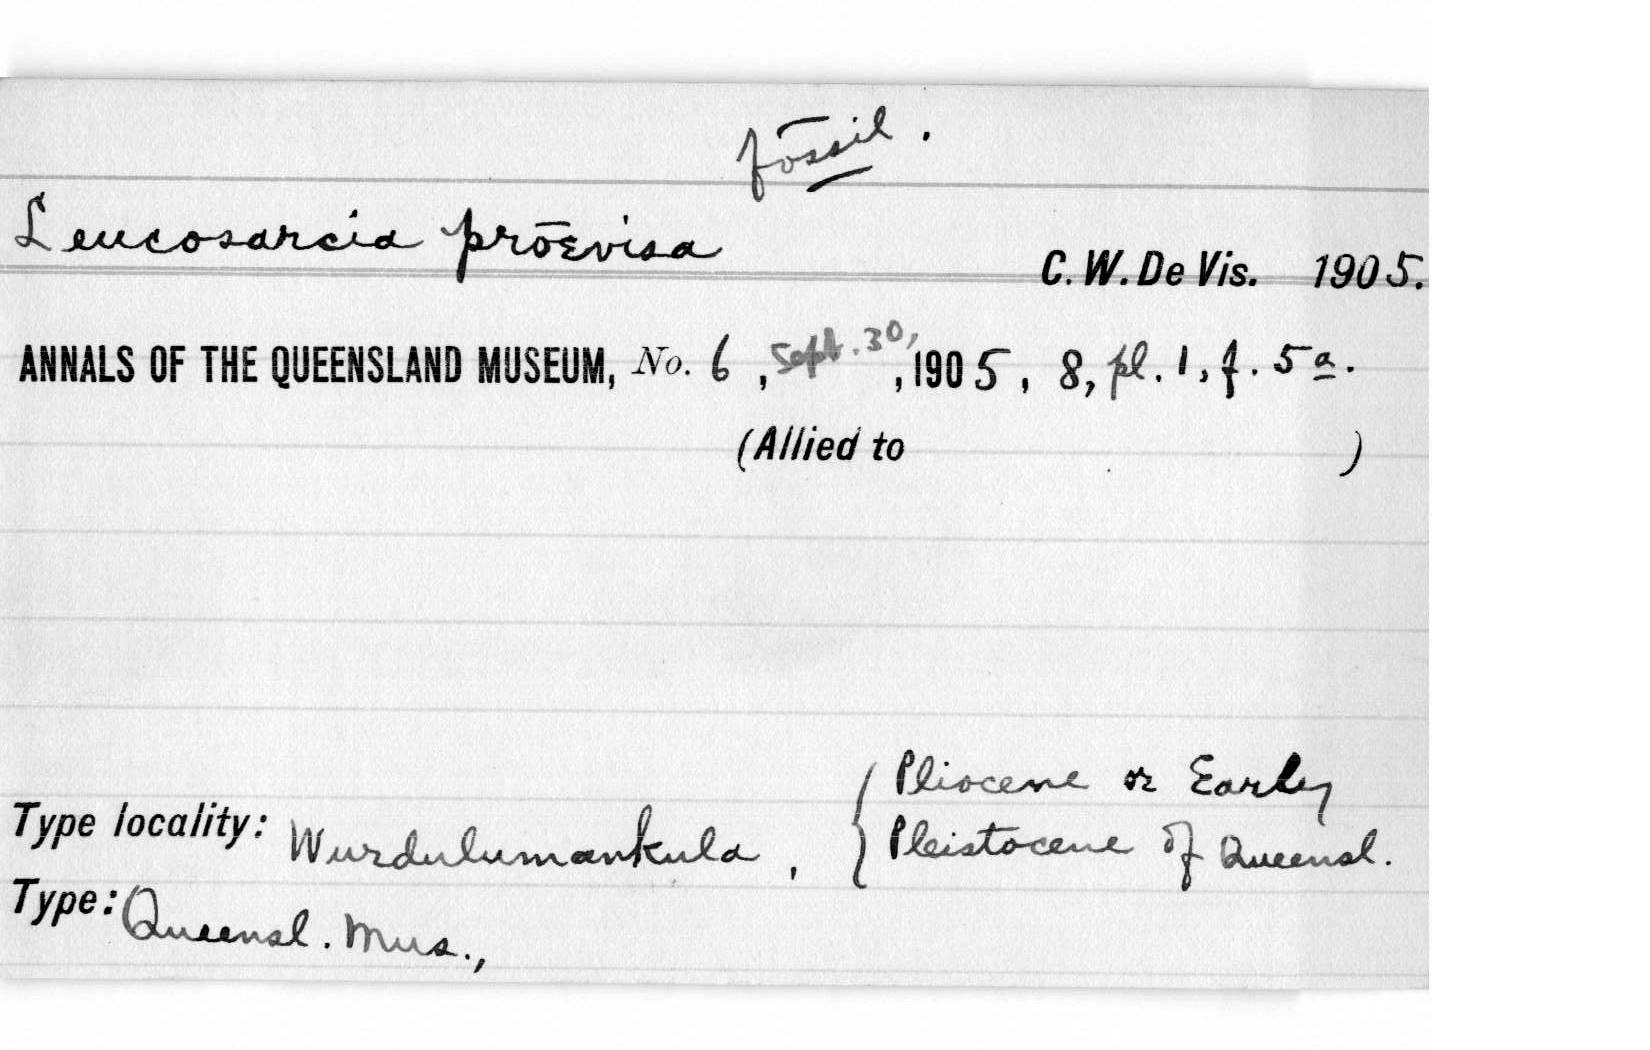 fossil.
Leucosarcia proevisa
C. W. De Vis. 1905.
ANNALS OF THE QUEENSLAND MUSEUM, No. 6, Sept. 30, , 1905, 8, pl. 1, f. 5a.
(Allied to )
Pliocene or Early
Type locality: Wurdulumankula, Pleistocene of Queensl.
Type: Queensl. Mus.,